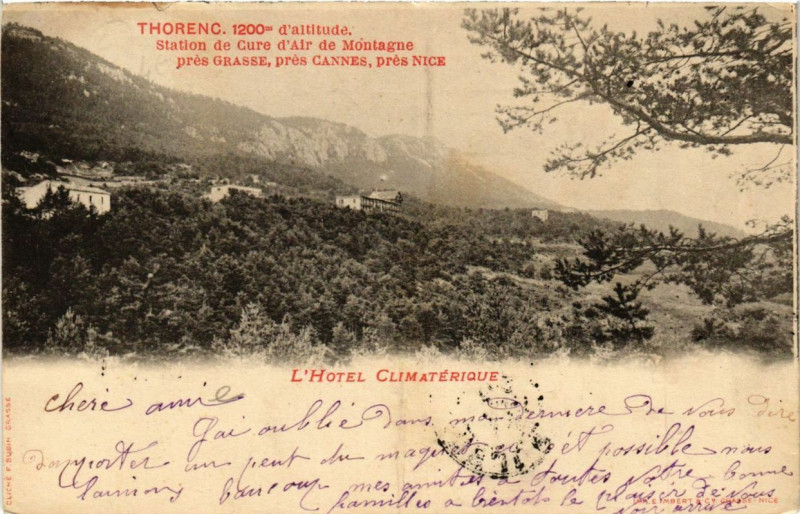 THORENC. 1200m d'altitude.
Station de Cure d'Air de Montagne
près GRASSE, près CANNES, près NICE
L'HOTEL CLIMATÉRIQUE
cheré amie
J'ai oublié dans mon derniere de vous dire
d'apporter un peut du possible nous
l'aimons baucoup mes amitiés a toutes votre bonne
familles a bientôt le plaisir de vous
voir arrivé
CLICHÉ F. BUSIN GRASSE
IMBERT & Cie GRASSE-NICE